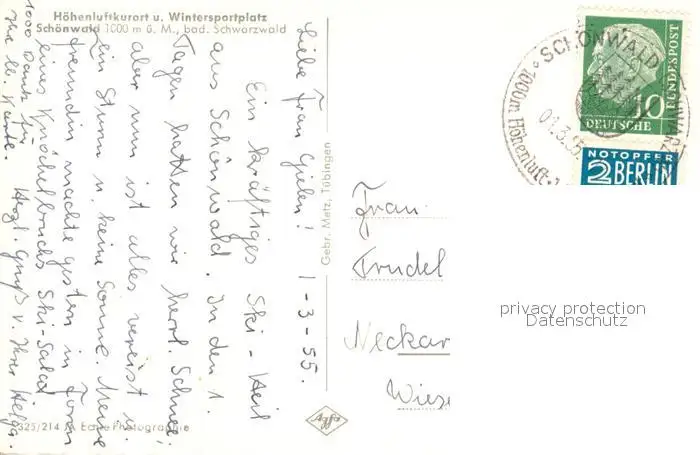 Höhenluftkurort u. Wintersportplatz
Schönwald 1000 m ü. M., bad. Schwarzwald
Liebe Frau Gielen! 1-3-55.
Ein kräftiges Ski-Heil
aus Schönwald. In den 1.
Tagen hatten wir herrl. Schnee,
aber nun ist alles vereist u.
ein Sturm u. keine Sonne. Meine
Freundin machte gestern in Form
eines Knöchelbruchs Ski-Salat
1000 Dank für Ihre lb. Karte.
Herzl. Gruß v. Ihrer Helga.
325/214 Echte Photographie
Gebr. Metz, Tübingen
Agfa
Frau
Trudel
Neckar
Wies
SCHÖNWALD
1000m Höhenluft
01.3.55
10
DEUTSCHE
BUNDESPOST
NOTOPFER
2 BERLIN
privacy protection
Datenschutz